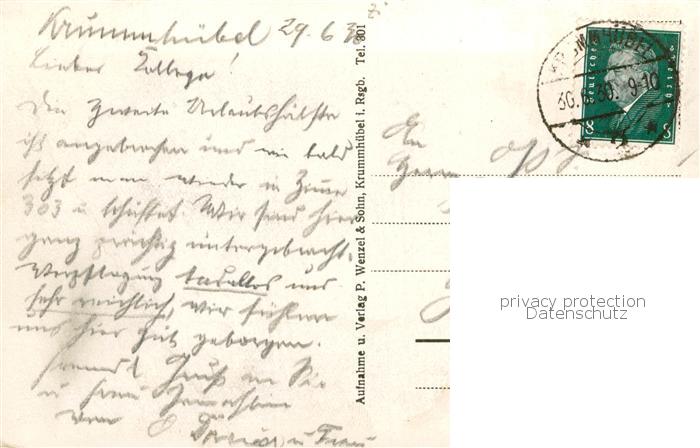 Krummhübel 29.6.30
Lieber Kollege!
Die zweite Urlaubshälfte
ist angebrochen und wie bald
sitzt man wieder in Zimmer
303 u. schuftet. Wir sind hier
ganz prächtig untergebracht.
Verpflegung tadellos und
sehr reichlich, wir fühlen
uns hier gut geborgen.
Freundl. Gruß an Sie
u. Frau Gemahlin
von u. Frau
Aufnahme u. Verlag P. Wenzel & Sohn, Krummhübel i. Rsgb. Tel. 301
KRUMMHÜBEL
30.6.30. 9-10
Deutsches Reich
8 8
An
Herrn
privacy protection
Datenschutz